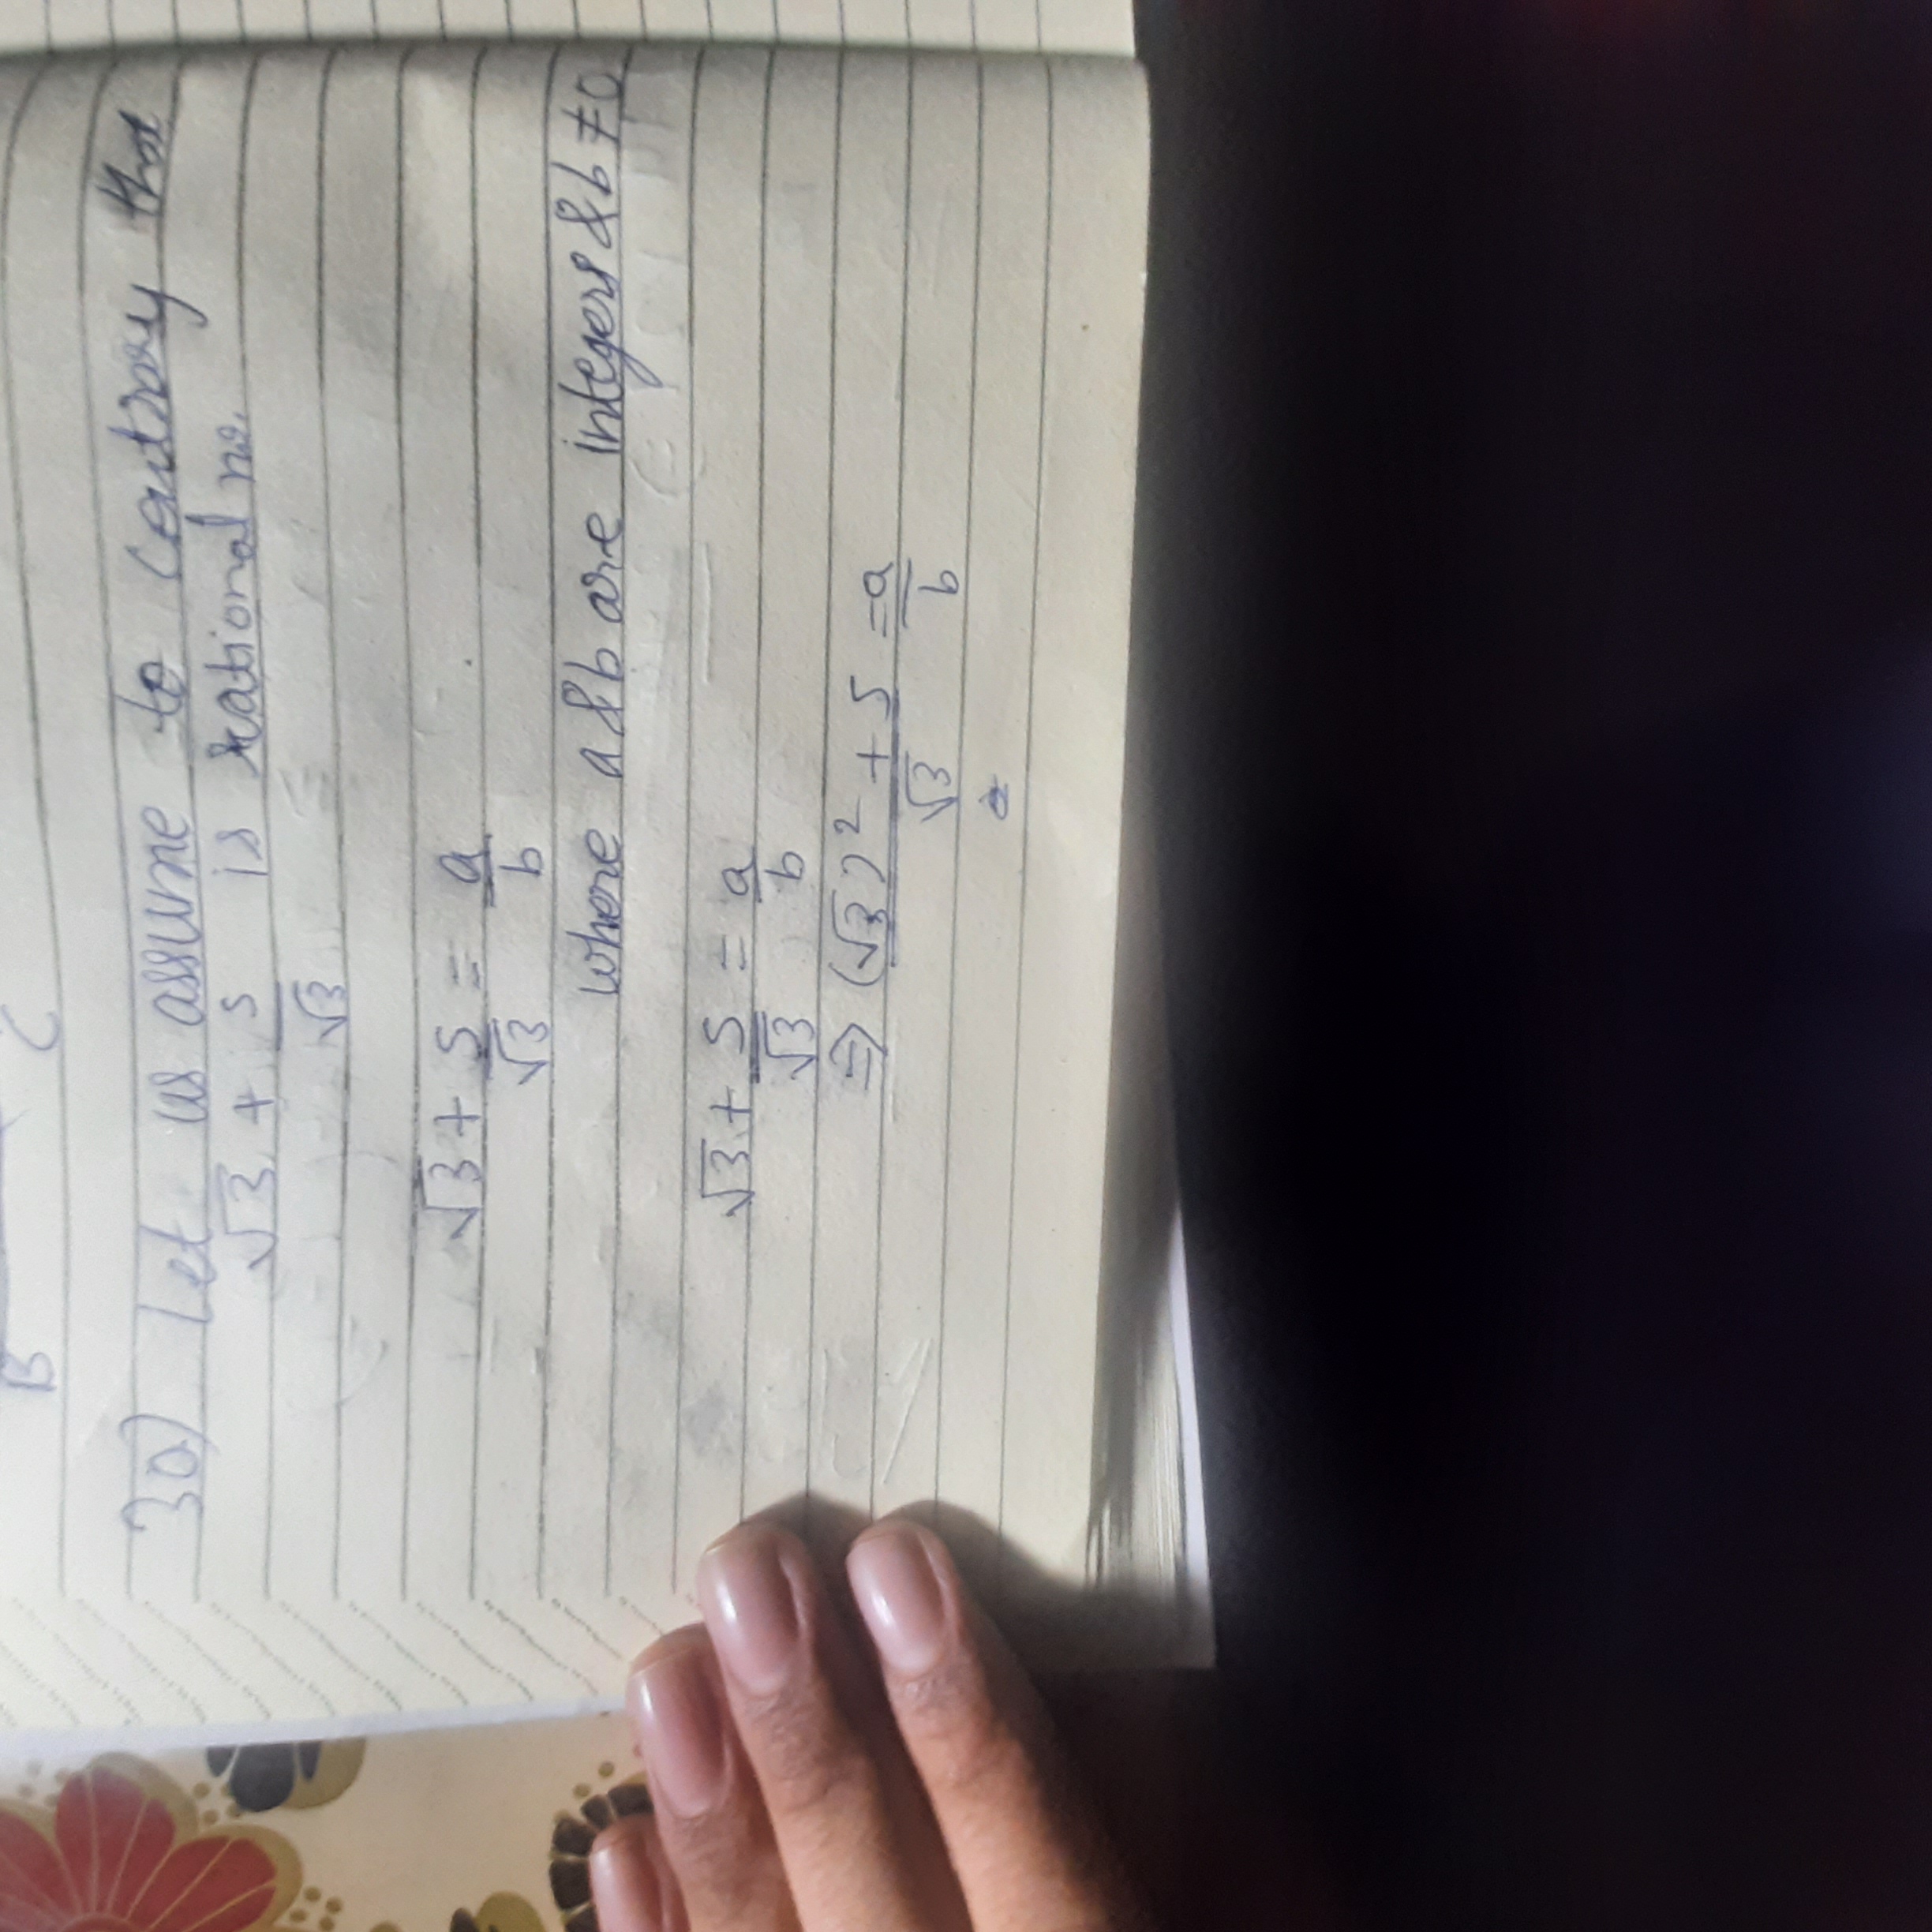 B C
30) Let us assume to contrary that
√3 + 5/√3 is rational no.
√3 + 5/√3 = a/b
where a & b are integers & b ≠ 0
√3 + 5/√3 = a/b
⇒ (√3)² + 5/√3 = a/b